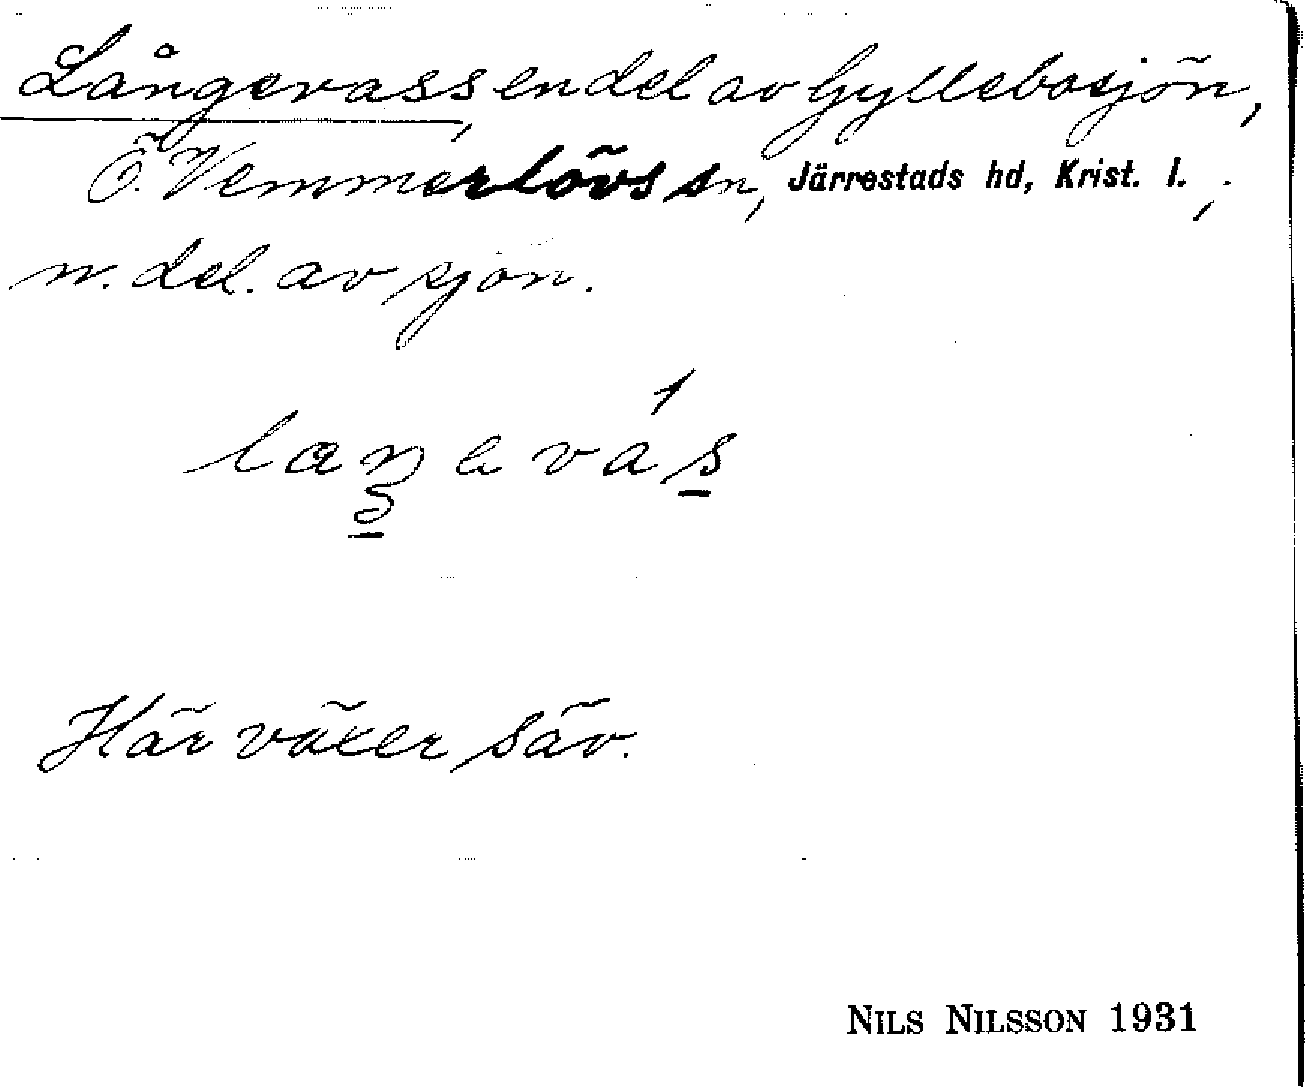 Långevass, en del av Gyllebosjön,
Ö. Vemmerlövs sn, Järrestads hd, Krist. l.,
n. del. av sjön.
Här växer säv.
NILS NILSSON 1931